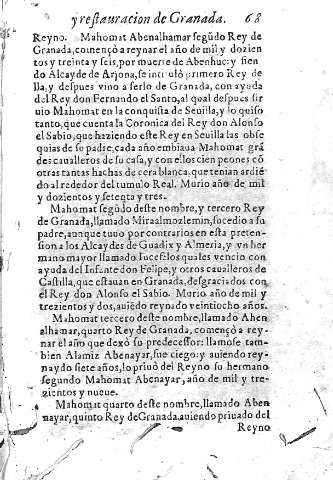 y restauracion de Granada. 68
Reyno. Mahomat Abenalhamar segũdo Rey de
Granada, començò a reynar el año de mil y dozien
tos y treinta y seis, por muerte de Abenhuc: y sien
do Alcayde de Arjona, se intituló primero Rey de
lla, y despues vino a serlo de Granada, con ayuda
del Rey don Fernando el Santo, al qual despues sir
uio Mahomat en la conquista de Seuilla, y lo quiso
tanto, que cuenta la Coronica del Rey don Alonso
el Sabio, que haziendo este Rey en Seuilla las obse
quias de su padre, cada año embiaua Mahomat grã
des caualleros de su casa, y con ellos cien peones cõ
otras tantas hachas de cera blanca, que tenian ardiẽ
do al rededor del tumulo Real. Murio año de mil
y dozientos y setenta y tres.
Mahomat segũdo deste nombre, y tercero Rey
de Granada, llamado Miraalmozlemin, sucedio a su
padre, aunque tuuo por contrarios en esta preten-
sion a los Alcaydes de Guadix y Almeria, y vn her
mano mayor llamado Iucef: los quales vencio con
ayuda del Infante don Felipe, y otros caualleros de
Castilla, que estauan en Granada, desgraciados con
el Rey don Alonso el Sabio. Murio año de mil y
trezientos y dos, auiẽdo reynado veintiocho años.
Mahomat tercero deste nombre, llamado Aben
alhamar, quarto Rey de Granada, començò a rey-
nar el año que dexò su predecessor: llamose tam-
bien Alamiz Abenayar, fue ciego: y auiendo rey-
nado siete años, lo priuò del Reyno su hermano
segundo Mahomat Abenayar, año de mil y tre-
zientos y nueue.
Mahomat quarto deste nombre, llamado Abe-
nayar, quinto Rey de Granada, auiendo priuado del
Reyno